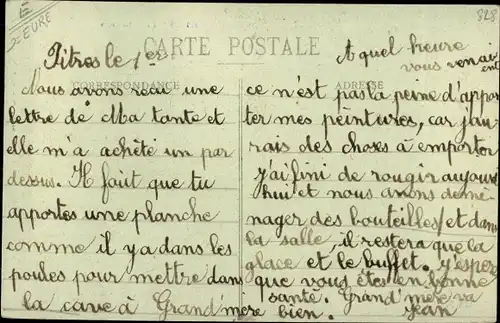 E
EURE
828
CARTE POSTALE
CORRESPONDANCE
ADRESSE
Pitres le 1er
Nous avons reçu une
lettre de Ma tante et
elle m'a acheté un par
dessus. Il faut que tu
apportes une planche
comme il y a dans les
poules pour mettre dans
la cave à Grand'mère
A quel heure
vous venai
ent
ce n'est pas la peine d'appor
ter mes peintures, car j'au
rais des choses à emporter
j'ai fini de rougir aujour
hui et nous avons demé
nager des bouteilles et dans
la salle, il restera que la
glace et le buffet. j'esper
que vous êtes en bonne
santé. Grand'mere va
bien. Jean